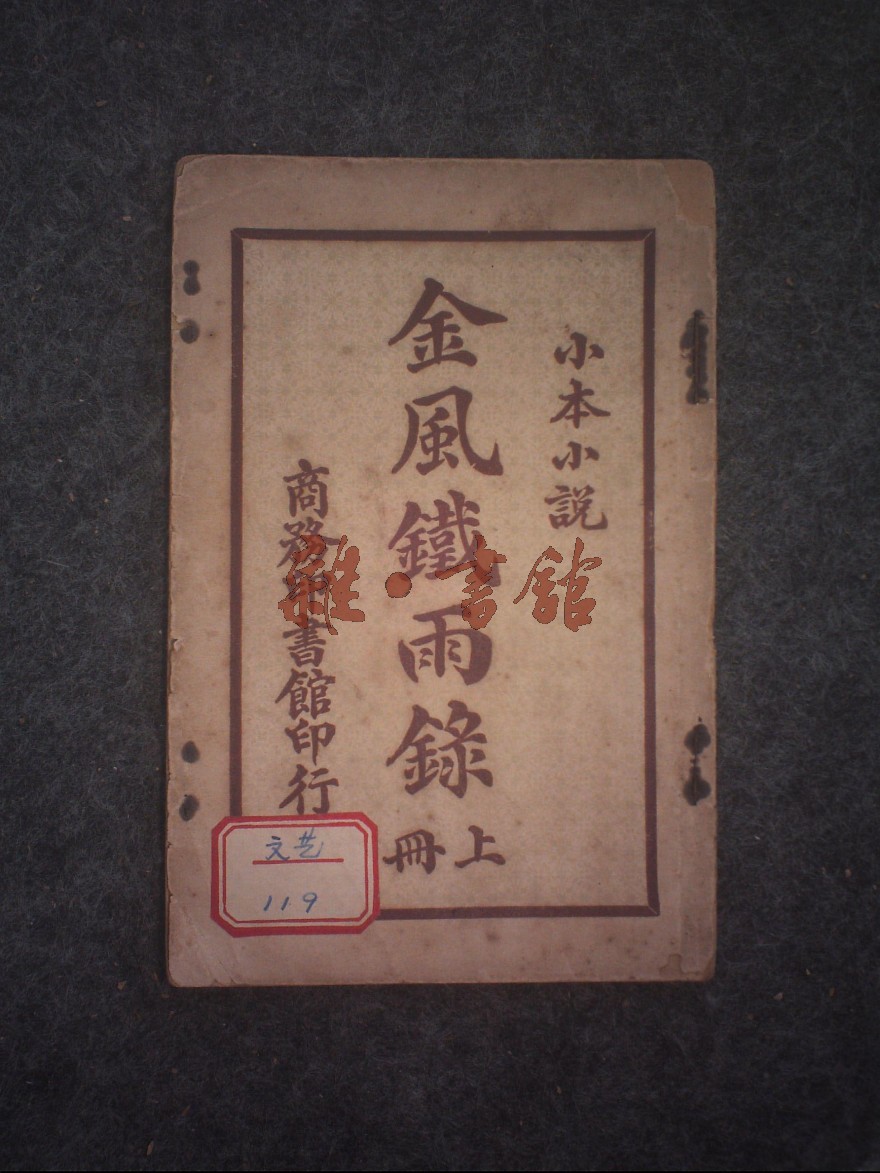 小本小説
金風鐵雨錄
上冊
商務印書館印行
雜·書館
文艺
11.9